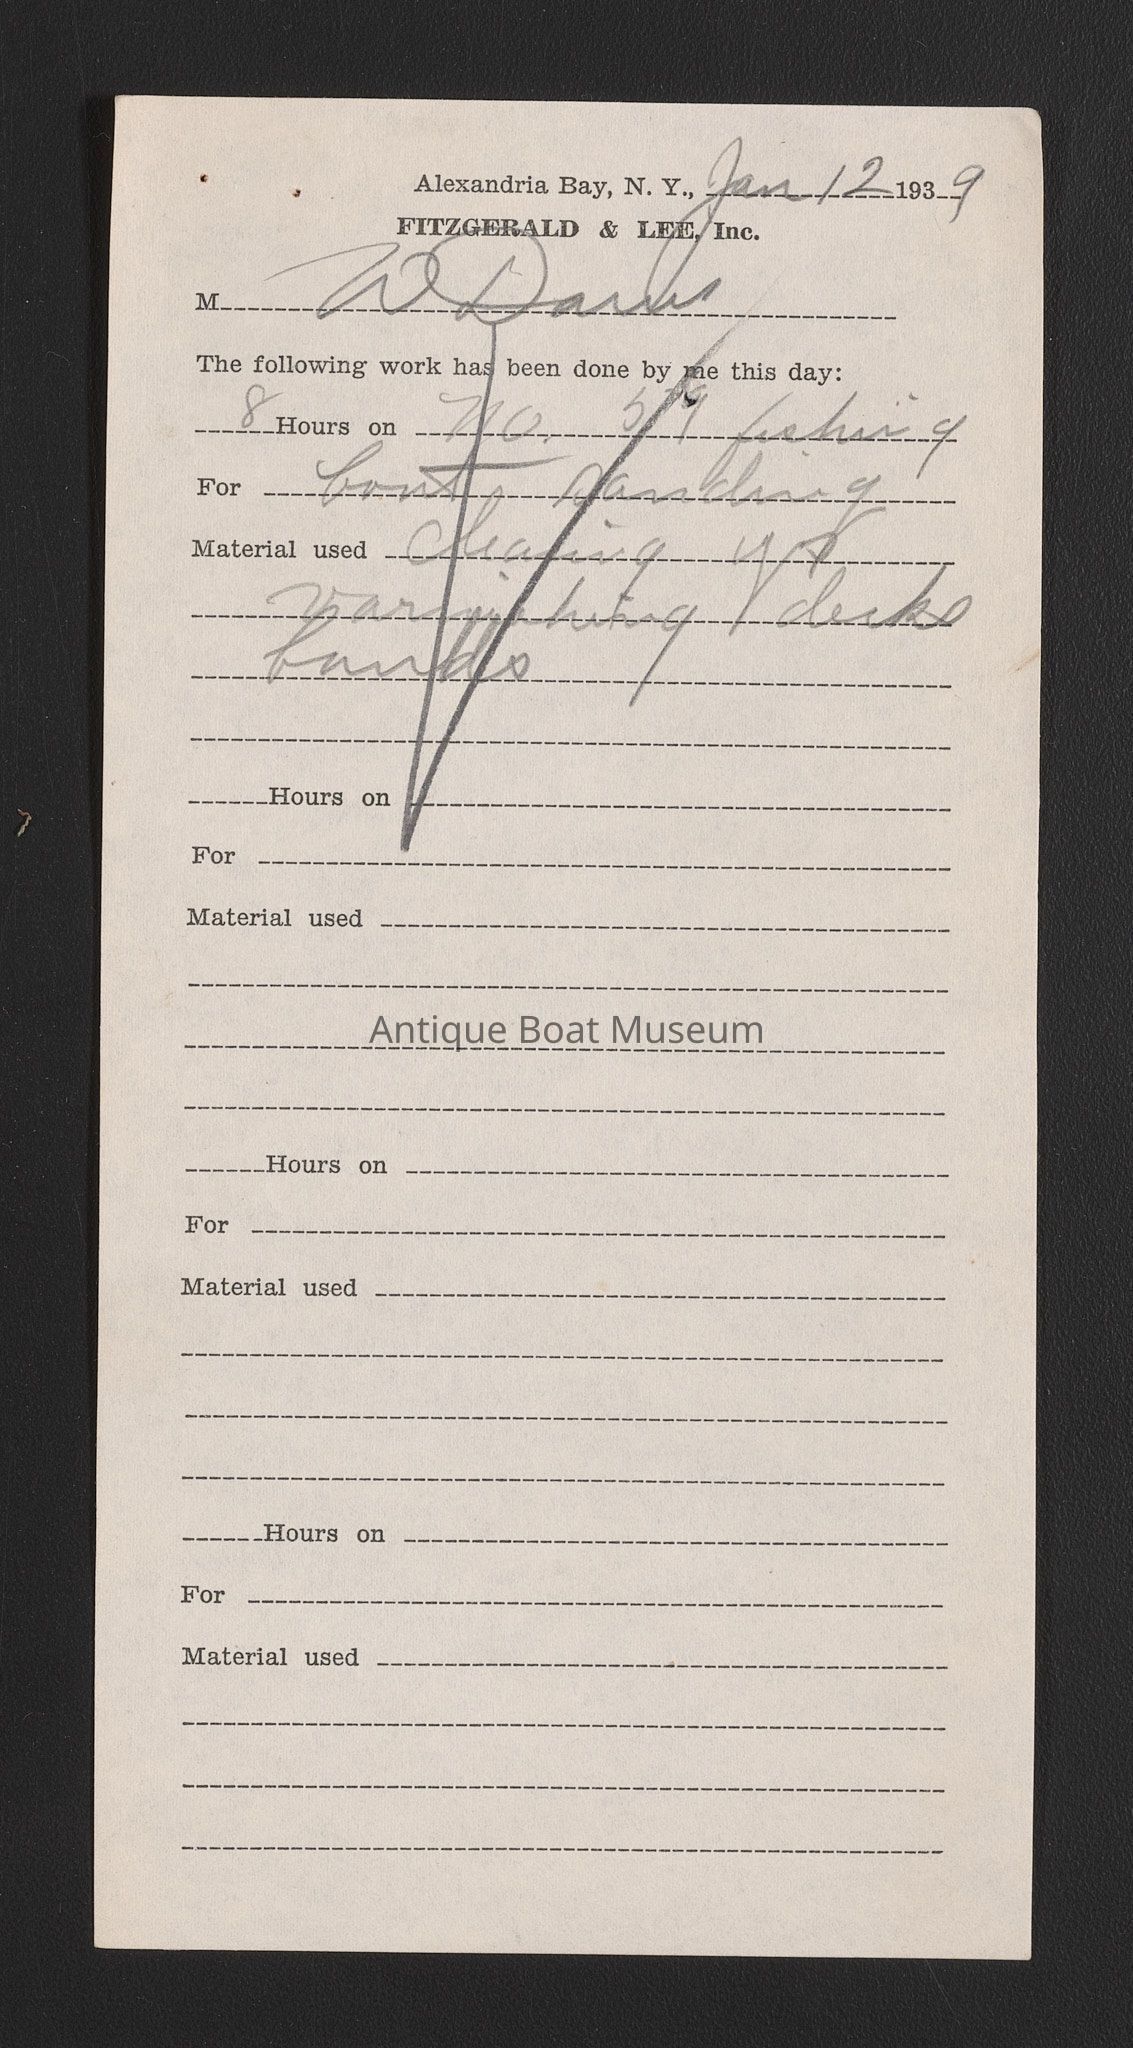 Alexandria Bay, N. Y., Jan 12 1939
FITZGERALD & LEE, Inc.
M W Davis
The following work has been done by me this day:
8 Hours on No. 579 fishing
For boat, sanding
Material used cleaning up
varnishing decks
Hours on
For
Material used
Antique Boat Museum
Hours on
For
Material used
Hours on
For
Material used